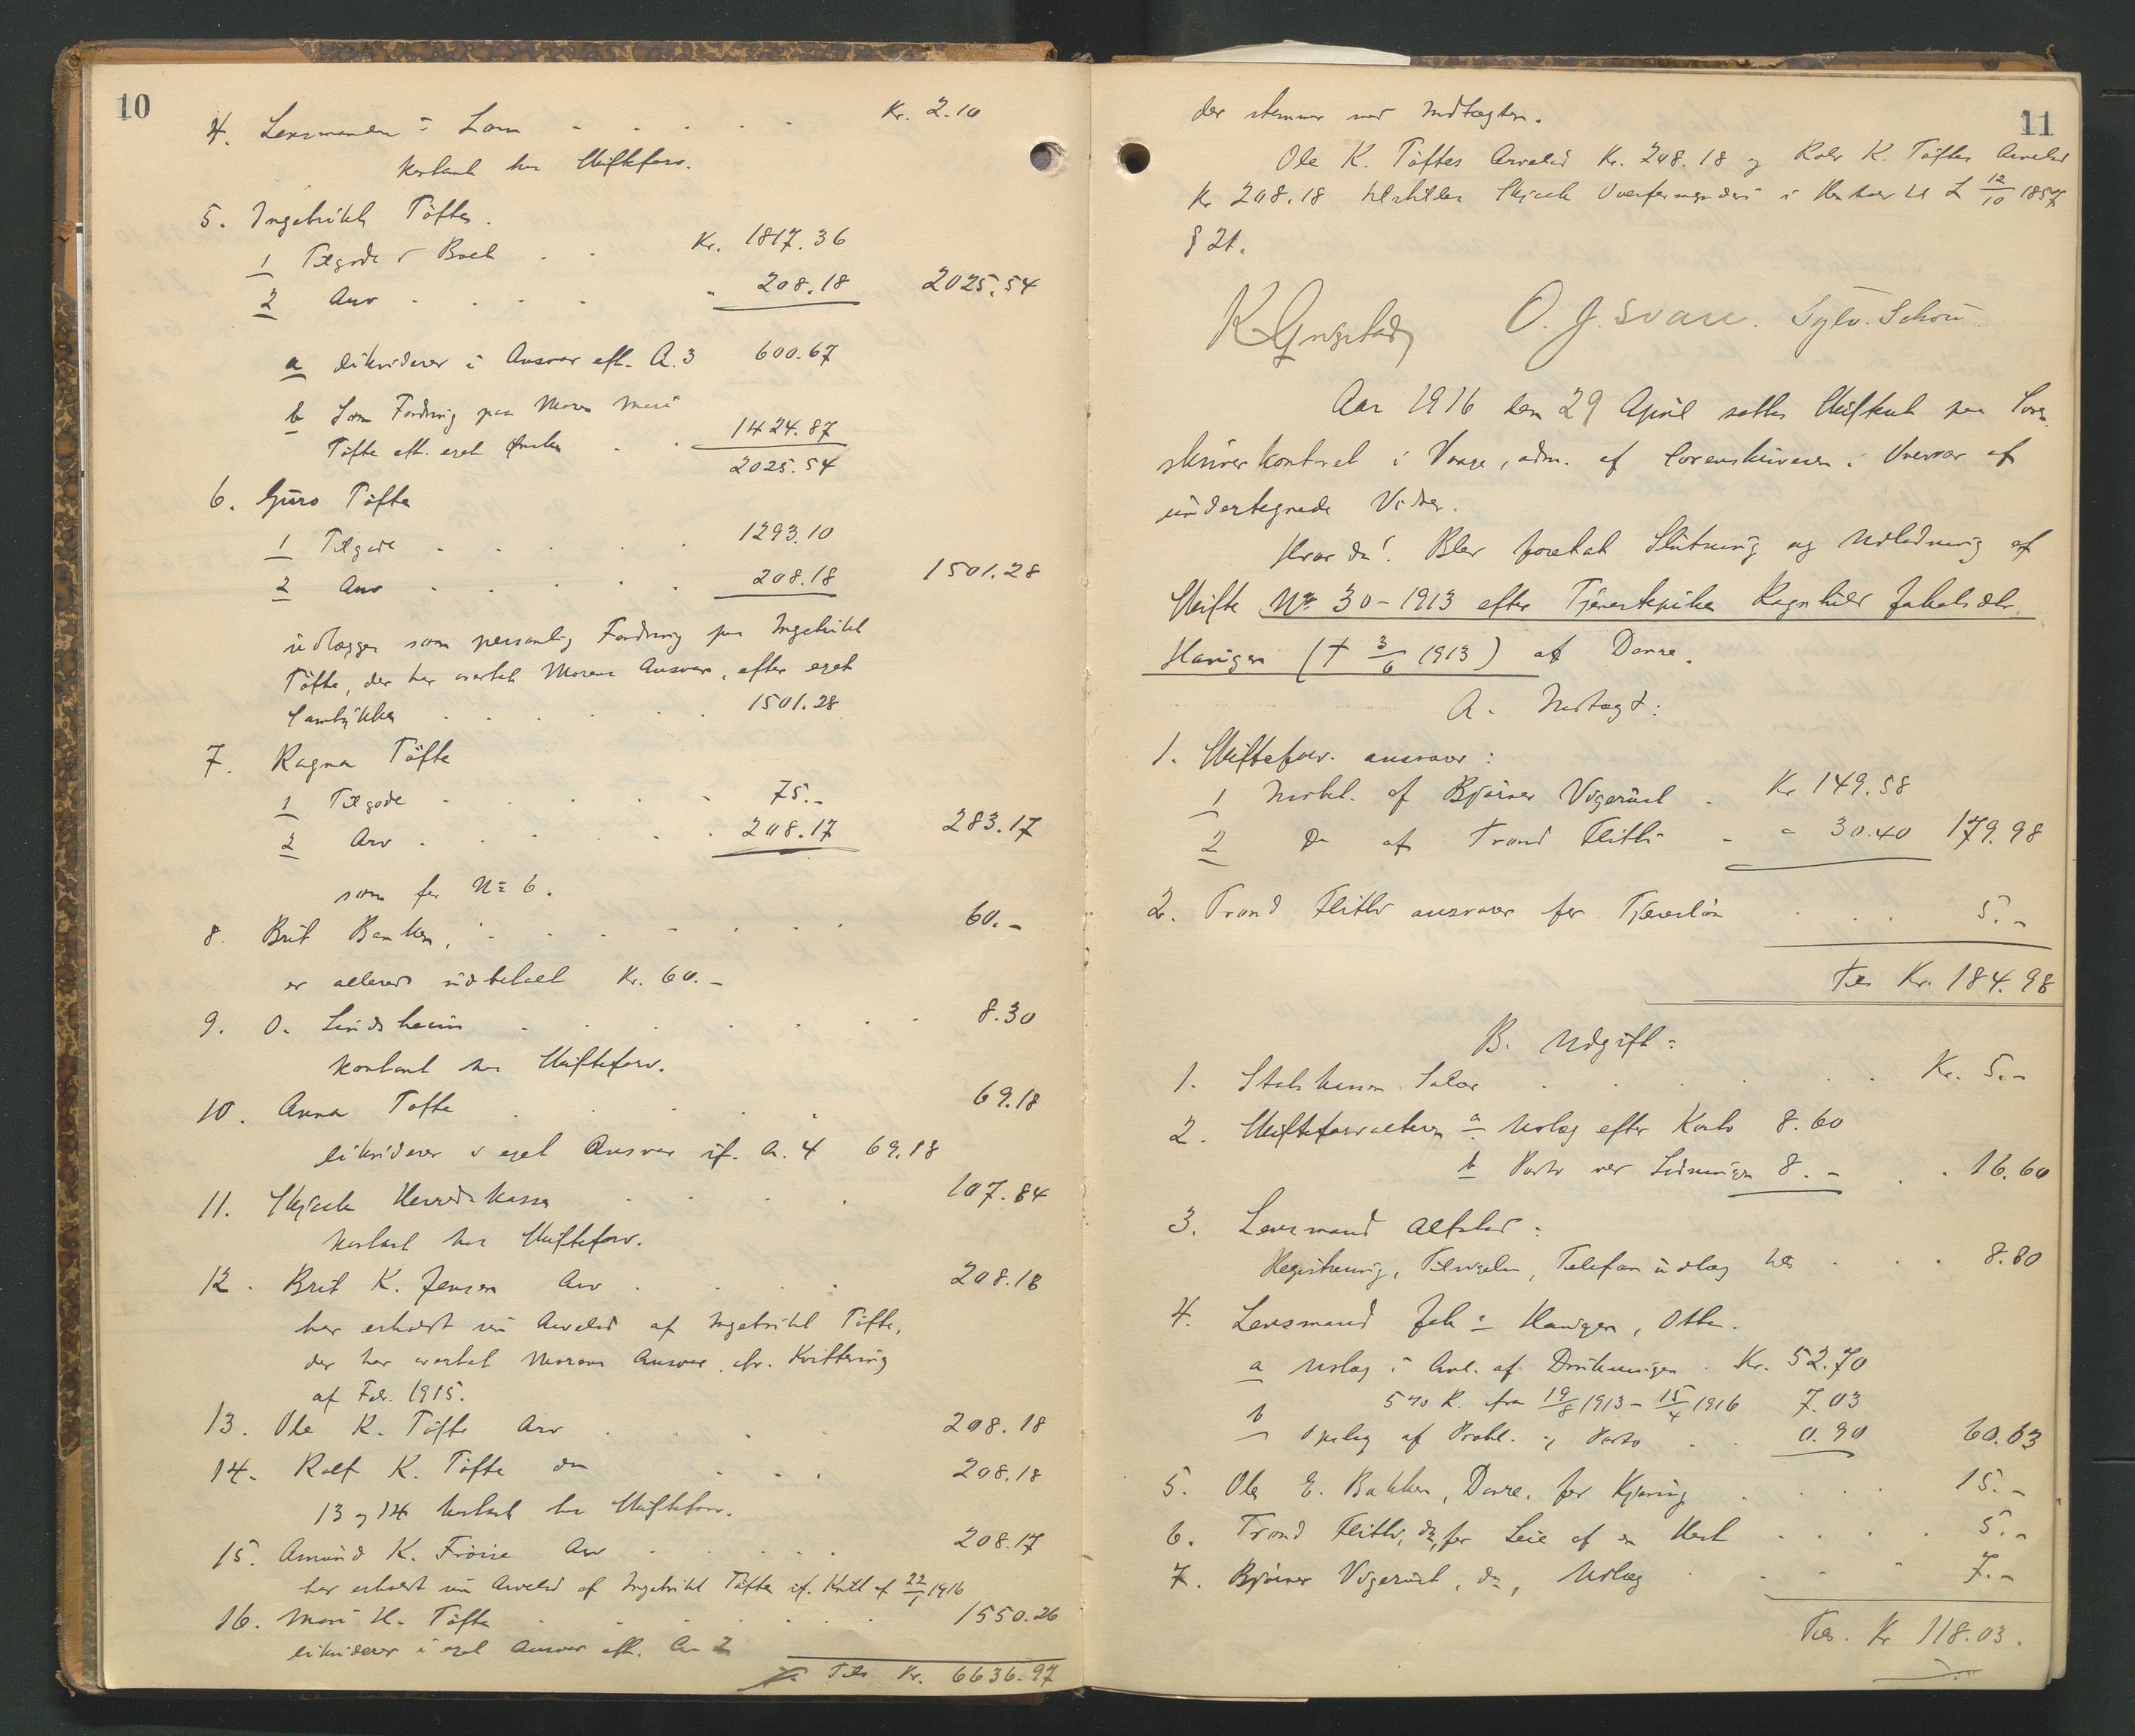 10
4. Lensmanden i Lom . . . . . Kr. 2.10
kontant hos Skifteforv.
5. Ingebrikt Töfte.
1 Tilgode i Boet . . Kr. 1817.36
2 Arv . . . . " 208.18 2025.54
a likviderer i Ansvar eft. A.3 600.67
b Som Fordring paa Moren Mari
Töfte eft. eget Ønske . . 1424.87
2025.54
6. Guro Töfte
1 Tilgode . . . . . 1293.10
2 Arv . . . . . 208.18 1501.28
udlægges som personlig Fordring paa Ingebrikt
Töfte, der har overtat Morens Ansvar, efter eget
Samtykke . . . . . 1501.28
7. Ragna Töfte
1 Tilgode . . . . . 75.-
2 Arv . . . . . 208.17 283.17
som for No 6.
8. Brit Bakken, . . . . . . 60.-
er allerede udbetalt Kr. 60.-
9. O. Lindsheim . . . . . . 8.30
kontant hos Skifteforv.
10. Anna Tofte . . . . . 69.18
likviderer i eget Ansvar jf. A. 4 69.18
11. Skjaak Herredskasse . . . . 107.84
kontant hos Skifteforv.
12. Brit K. Jensen Arv . . . . 208.18
har erholdt sin Arvelod af Ingebrikt Töfte,
der har overtat Morens Ansvar, cfr. Kvittering
af Febr. 1915.
13. Ole K. Töfte Arv . . . 208.18
14. Rolf K. Töfte do . . . 208.18
13 og 14 kontant hos Skifteforv.
15. Amund K. Fröise Arv . . . . . 208.17
har erholdt sin Arvelod af Ingebrikt Töfte jf. Kvitt af 22/1 1916
16. Mari H. Töfte . . . . . . 1550.26
likviderer i eget Ansvar eft. A 2
Tils Kr. 6636.97
11
der stemmer med Indtægten.
Ole K. Töftes Arvelod Kr. 208.18 og Rolv K. Töftes Arvelod
Kr 208.18 tilstilles Skjaak Overformynderi i Henhold til L 12/10 1857
§ 21.
K Gregstad O. J. Svare. Sylv. Schou.
Aar 1916 den 29 April sattes Skifteret paa Soren-
skriverkontoret i Vaage, adm. af Sorenskriveren i Overvær af
undertegnede Vidner.
Hvorda! Blev foretat Slutning og Udlodning af
Skifte No 30-1913 efter Tjenestepike Ragnhild Jakobsdtr.
Haugen († 3/6 1913) af Dovre.
A. Indtægt:
1. Skifteforv. ansvarer:
1 Indbet. af Bjørner Vigerust . Kr 149.58
2 Do af Trond Flittie - " 30.40 179.98
2. Trond Flittie ansvarer for Tjenerløn . . . 5.-
Tils Kr. 184.98
B. Udgift:
1. Statskassen Salær . . . . . . Kr. 5.-
2. Skifteforvalteren a Udlæg efter Konto 8.60
b Porto ved Slutningen 8.- . . 16.60
3. Lensmand Alfstad:
Registrering, Tilsigelse, Telefonudlæg tils . . . 8.80
4. Lensmand Jak. Haugen, Otta.
a Udlæg i Anl. af Drukningen . Kr. 52.70
b 5% R. fra 19/8 1913 - 15/4 1916 7.03
Oplæg af Protok. og Porto . . 0.90 60.63
5. Ole E. Bakken, Dovre, for Kjøring . . . . 15.-
6. Trond Flittie, do, for Leie af en Hest . . . . 5.-
7. Bjørner Vigerust, do, Udlæg . . . . 7.-
Tils. Kr 118.03.